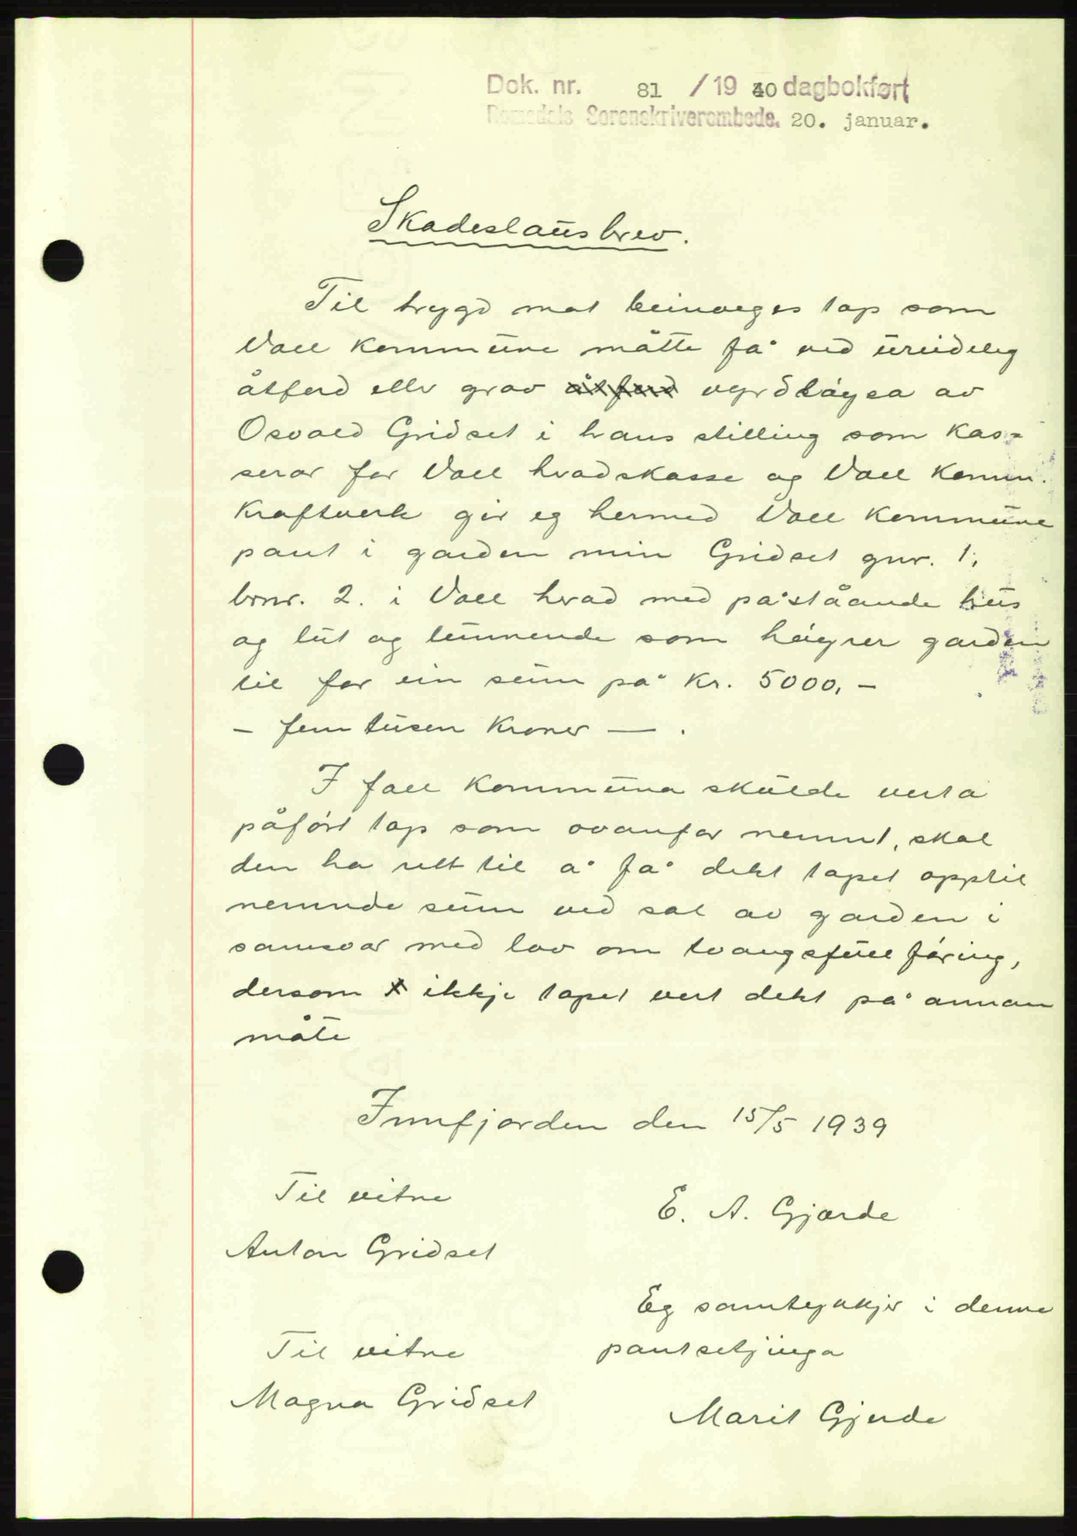 Dok. nr. 81 / 19 40 dagbokført
Romsdals Sorenskriverembede. 20. januar.
Skadeslausbrev.
Til trygd mot beinveges tap som
Voll kommune måtte få ved ureideleg
åtferd eller grov åtferd vyrdløysa av
Osvald Gridset i hans stilling som kas-
serar for Voll hradskasse og Voll Komm.
Kraftverk gir eg hermed Voll Kommune
pant i garden min Gridset gnr. 1,
brnr. 2. i Voll hrad med påståande hus
og lut og lunnende som høyrer garden
til for ein sum på kr. 5000,-
- fem tusen kroner - .
I fall kommuna skulde verta
påført tap som ovanfor nemnt, skal
den ha rett til å få dekt tapet opptil
nemnde sum ved sal av garden i
samsvar med lov om tvangsfullføring,
dersom ikkje tapet vert dekt på annan
måte
Innfjorden den 15/5 1939
Til vitne
E. A. Gjærde
Anton Gridset
Eg samtykkjer i denne
Til vitne
pantsetjinga
Magna Gridset
Marit Gjerde